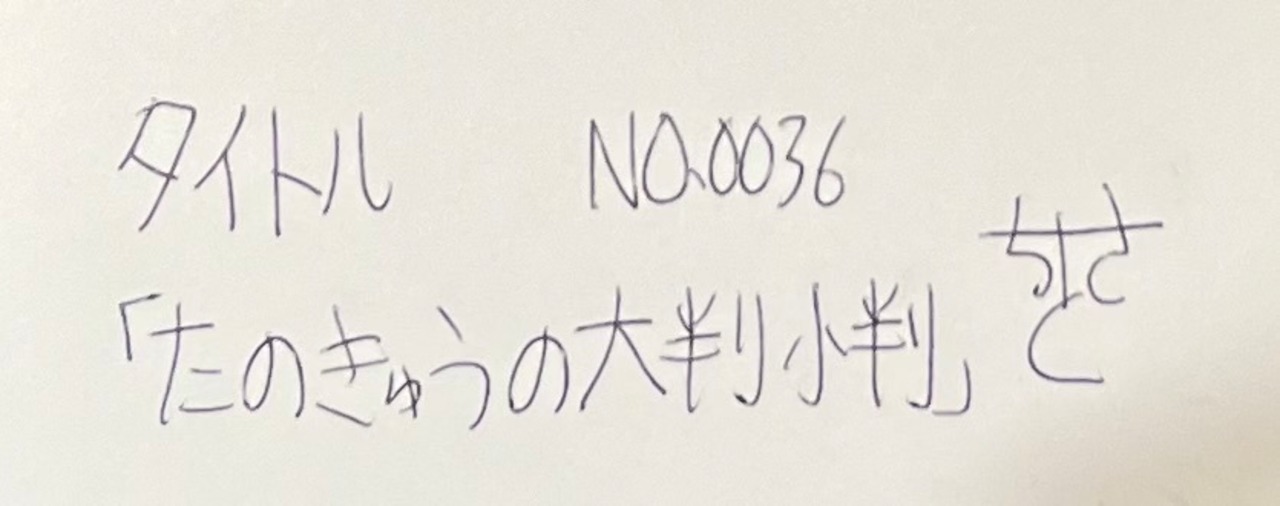 タイトル NO.0036
「たのきゅうの大判小判」